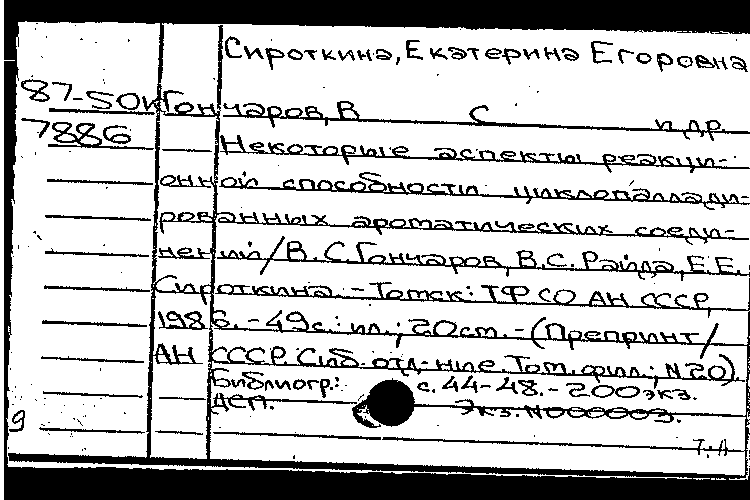 Сироткина, Екатерина Егоровна
87-50к Гончаров, В С и др.
7886 Некоторые аспекты реакци-
онной способности циклопаллади-
рованных ароматических соеди-
нений/В.С.Гончаров, В.С. Райда, Е.Е.
Сироткина. - Томск: ТФ СО АН СССР,
1986. - 49с.: ил.; 20см. - (Препринт/
АН СССР. Сиб. отд-ние. Том. фил.; N20).
Библиогр.: с. 44-48. - 200экз.
деп. Экз. N000003.
9